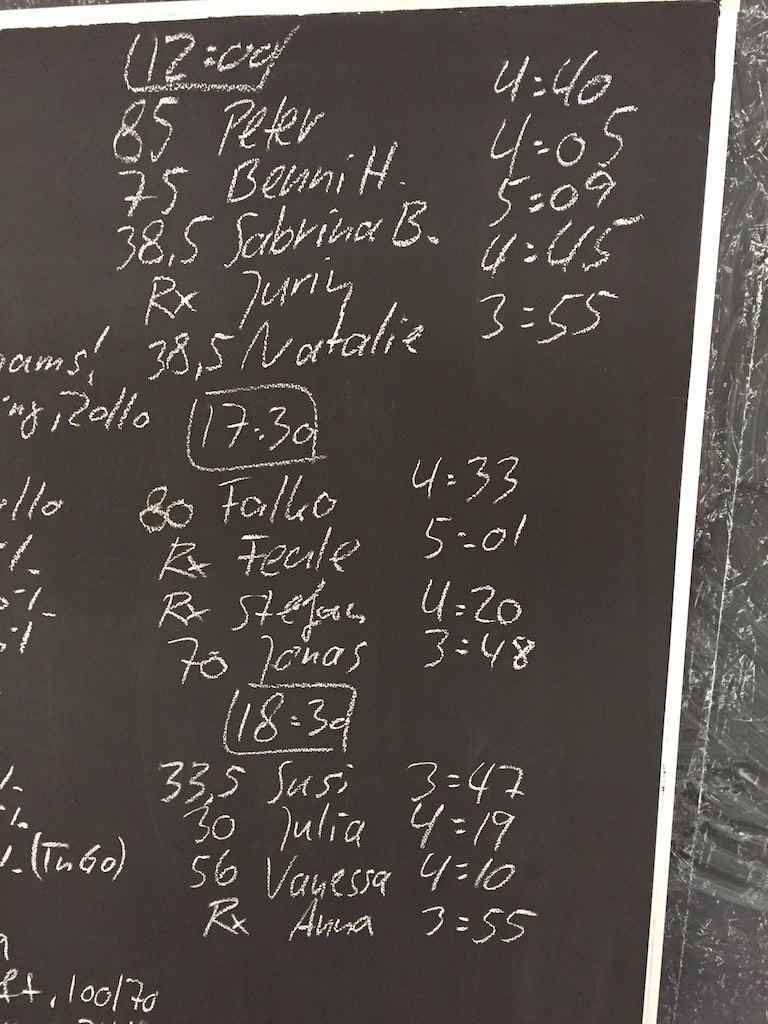 12:00
85 Peter 4:40
75 Benni H. 4:05
38,5 Sabrina B. 5:09
Rx Juriy 4:45
38,5 Natalie 3:55
ams!
Rollo
17:30
80 Falko 4:33
Rx Feale 5:01
Rx Stefan 4:20
70 Jonas 3:48
18:30
33,5 Susi 3:47
30 Julia 4:19
56 Vanessa 4:10
Rx Anna 3:55
(TnGo)
100/70